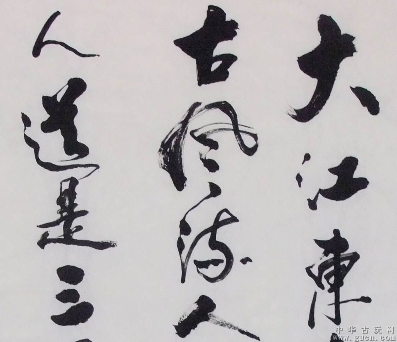 大江東
古風流人
人道是三
中华古玩网
www.gucn.com